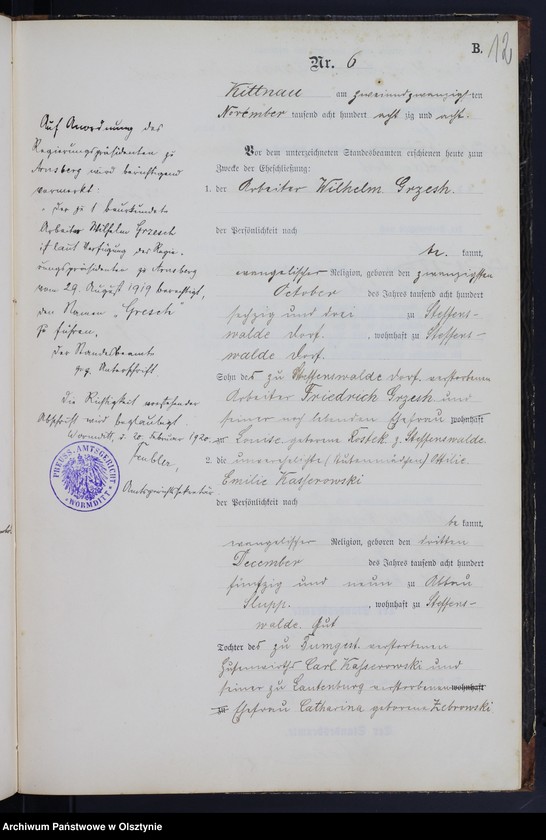 B.
12
Nr. 6
Kittnau am zweiundzwanzigsten
November tausend acht hundert achtzig und acht.
Vor dem unterzeichneten Standesbeamten erschienen heute zum
Zwecke der Eheschließung:
1. der Arbeiter Wilhelm Grzesh.
der Persönlichkeit nach
be kannt,
evangelischer Religion, geboren den zwanzigsten
October des Jahres tausend acht hundert
sechzig und drei zu Steffens-
walde Dorf. , wohnhaft zu Steffens-
walde Dorf.
Sohn des zu Steffenswalde Dorf verstorbenen
Arbeiter Friedrich Grzesh und
seiner noch lebenden Ehefrau wohnhaft
zu Louise geborene Kostek z. Steffenswalde
2. die unverehelichte Ottilie
Emilie Kasserowski
der Persönlichkeit nach
be kannt,
evangelischer Religion, geboren den dritten
December des Jahres tausend acht hundert
fünfzig und neun zu Abbau
Slupp. , wohnhaft zu Steffens-
walde. Gut
Tochter des zu verstorbenen
Carl Kasserowski und
seiner zu Lautenburg verstorbenen wohnhaft
zu Ehefrau Catharina geborene Zebrowski
Auf Anordnung des
Regierungspräsidenten zu
Arnsberg wird berichtigend
vermerkt:
Der zu 1 beurkundete
Arbeiter Wilhelm Grzesch
ist laut Verfügung des Regie-
rungspräsidenten zu Arnsberg
vom 29. August 1919 berechtigt,
den Namen "Gresch"
zu führen.
Der Standesbeamte
gez. Unterschrift
Die Richtigkeit vorstehender
Abschrift wird beglaubigt.
Wormditt, d. 20. Februar 1920.
Amtsgerichtssekretär
PREUSS. AMTSGERICHT
* WORMDITT *
Archiwum Państwowe w Olsztynie